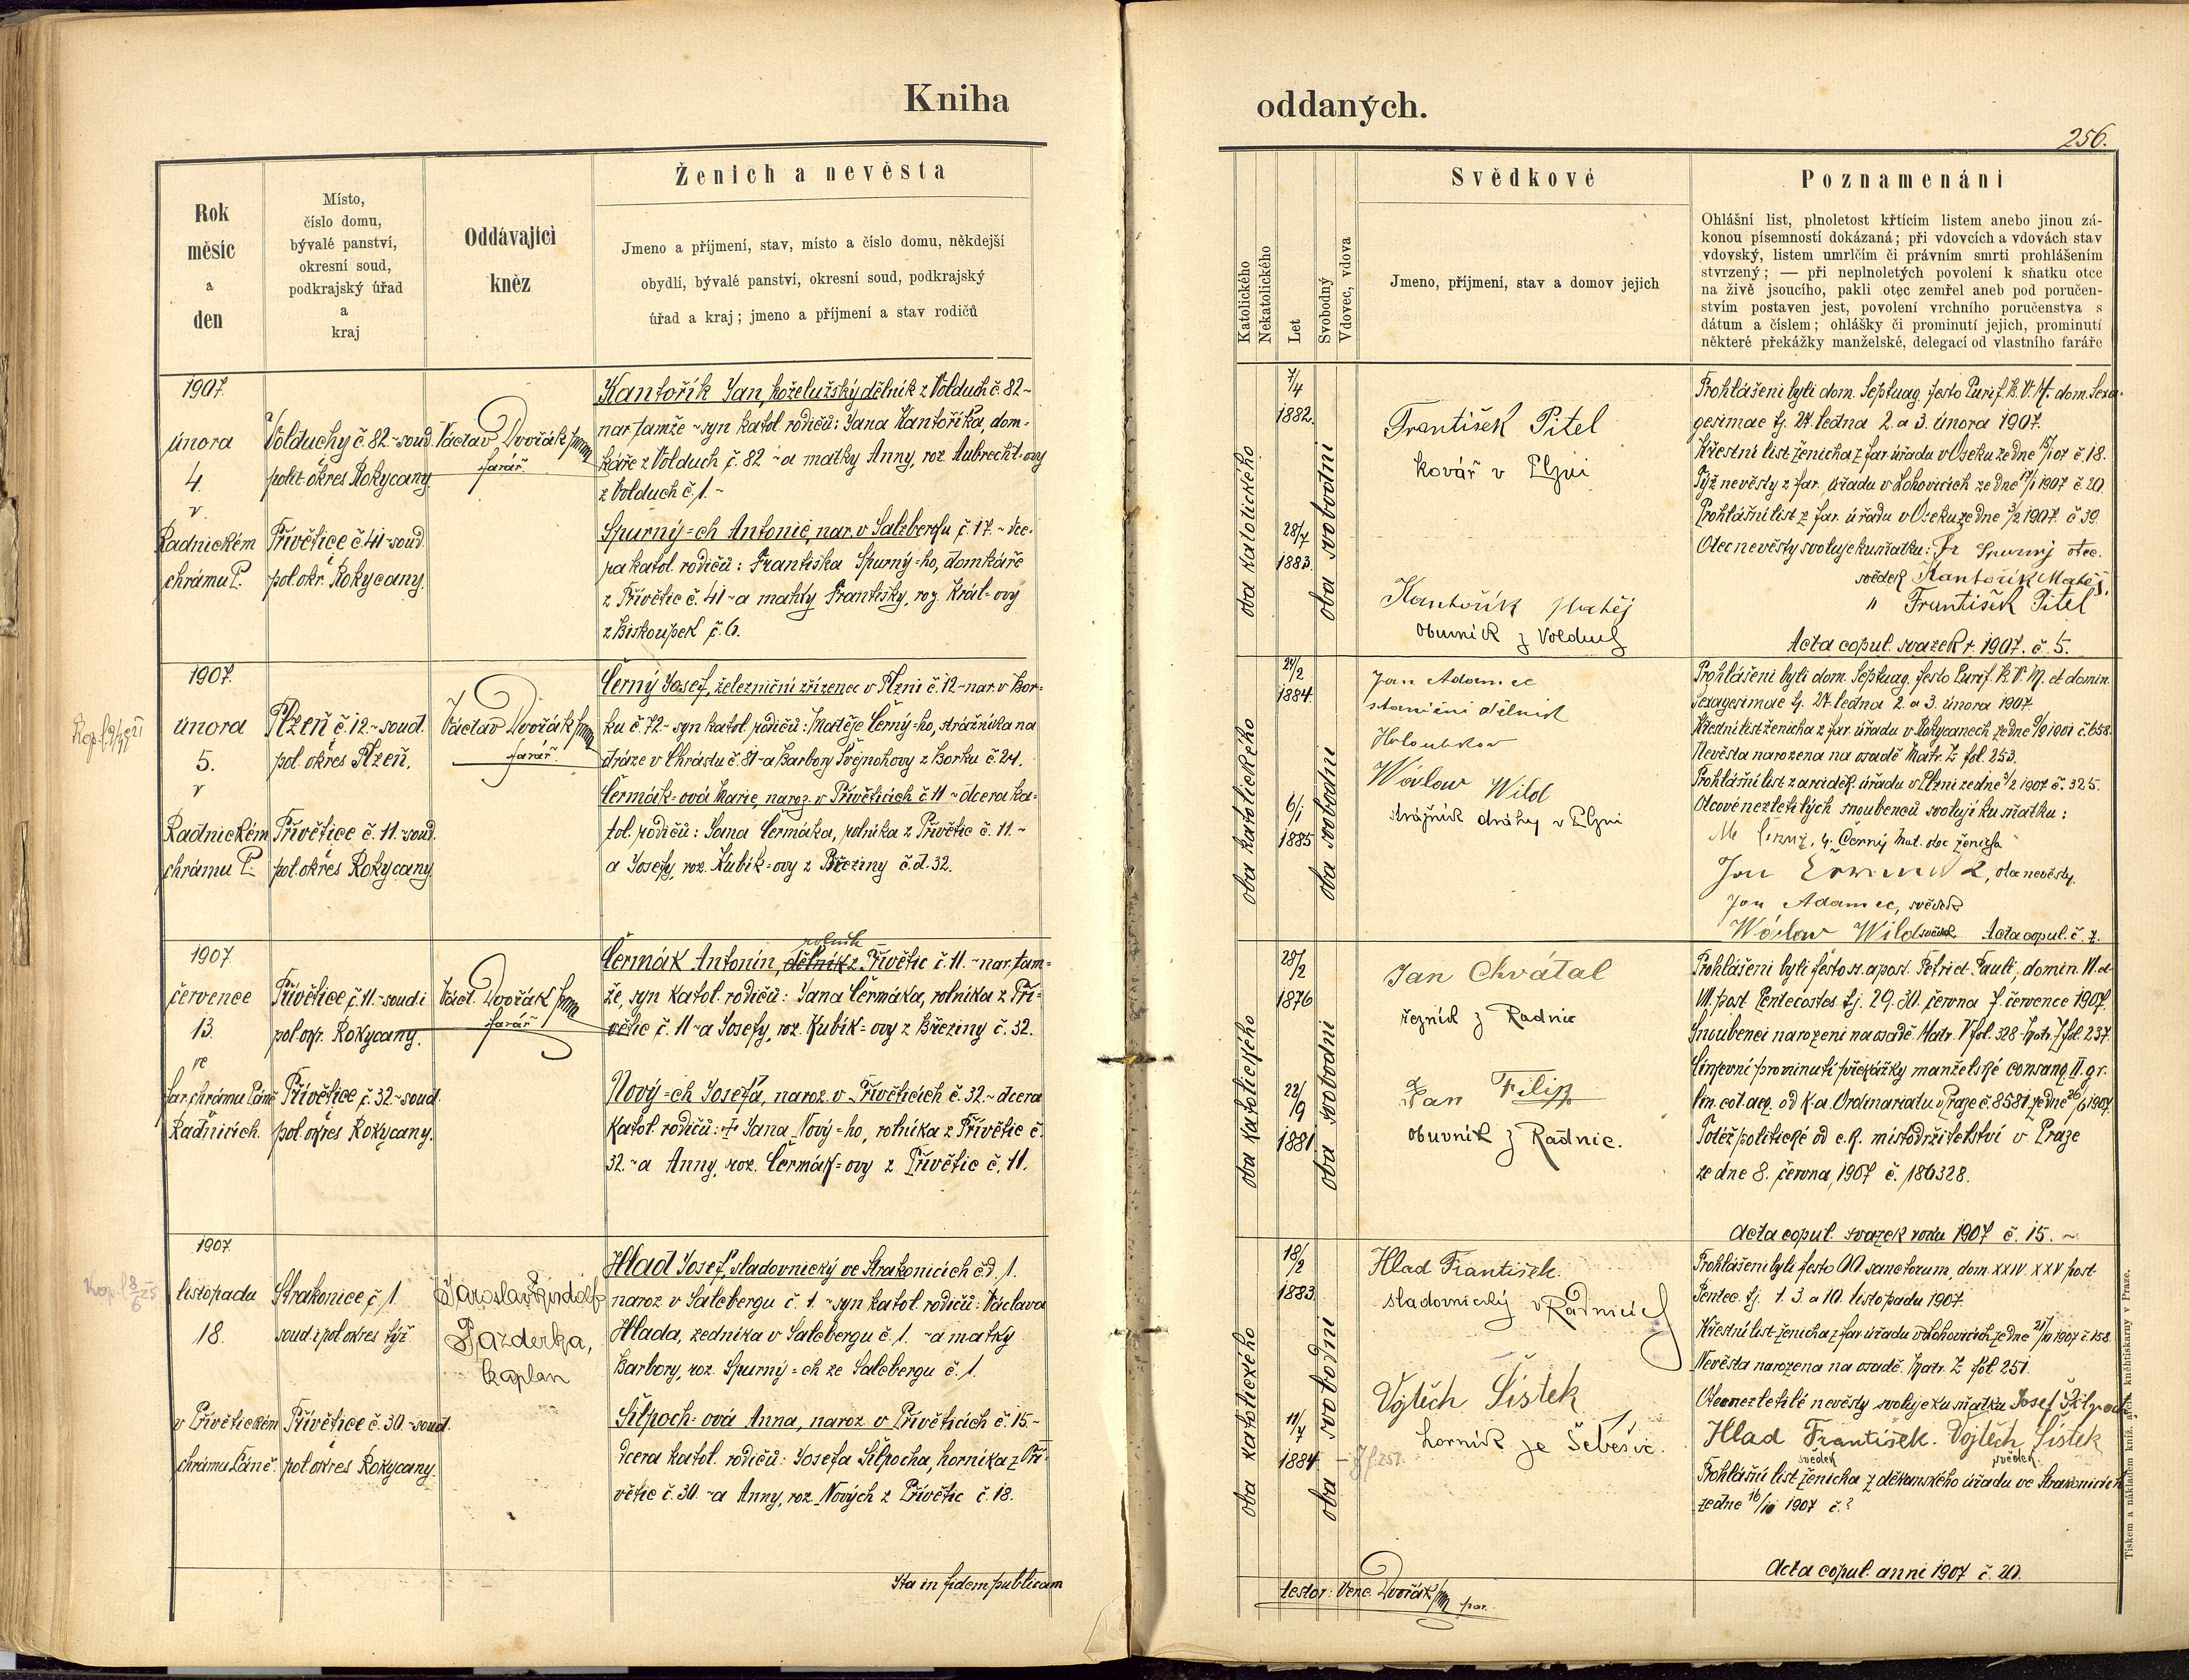 Kniha
oddaných.
256.
Rok
měsíc
a
den
Místo,
číslo domu,
bývalé panství,
okresní soud,
podkrajský úřad
a
kraj
Oddávající
kněz
Ženich a nevěsta
Jmeno a příjmení, stav, místo a číslo domu, někdejší
obydlí, bývalé panství, okresní soud, podkrajský
úřad a kraj; jmeno a příjmení a stav rodičů
Katolického
Nekatolického
Let
Svobodný
Vdovec, vdova
Svědkové
Jmeno, příjmení, stav a domov jejich
Poznamenání
Ohlášní list, plnoletost křtícím listem anebo jinou zá-
konou písemností dokázaná; při vdovcích a vdovách stav
vdovský, listem umrlčím či právním smrti prohlášením
stvrzený; — při neplnoletých povolení k sňatku otce
na živě jsoucího, pakli otec zemřel aneb pod poručen-
stvím postaven jest, povolení vrchního poručenstva s
dátum a číslem; ohlášky či prominutí jejich, prominutí
některé překážky manželské, delegací od vlastního faráře
1907.
února
4.
v
Radnickém
chrámu P.
Volduchy č 82 ~ soud.
polit. okres Rokycany.
Přívětice č. 41 ~ soud.
i
pol. okr. Rokycany.
Václav Dvořák
farář.
Kantořík Jan, koželužský dělník z Volduch č. 82 ~
nar. tamže ~ syn katol. rodičů: Jana Kantoříka, dom-
káře z Volduch č. 82 ~ a matky Anny, roz. Aubrecht-ovy
z Volduch č. 1. ~
Spurný=ch Antonie, nar. v Salzbergu č. 17. ~ dce-
ra katol. rodičů: Františka Spurný=ho, domkáře
z Přívětic č. 41 ~ a matky Františky, roz. Král=ovy
z Biskoupek č. 6.
oba katolického
7/4
1882.
28/7
1883.
oba svobodni
František Pitel
kovář v Plzni
Kantořík Matěj
Obuvník z Volduch
Prohlášeni byli dom. Septuag. festo Purif. B. V. M. dom. Sexa-
gesimae tj. 27. ledna 2. a 3. února 1907.
Křestní list ženicha z far. úřadu v Oseku ze dne 15/1 07 č. 18.
Týž nevěsty z far. úřadu v Lohovicích ze dne 17/1 1907 č. 20.
Prohlášní list z far. úřadu v Oseku ze dne 3/2 1907. č 39.
Otec nevěsty svoluje ku sňatku: Fr Spurný otec.
svědek Kantořík Matěj.
" František Pitel
Acta copul. svazek r. 1907. č. 5.
1907.
února
5.
v
Radnickém
chrámu P.
Plzeň č. 12 ~ soud.
i
pol. okres Plzeň.
Přívětice č. 11. ~ soud.
i
pol. okres Rokycany
Václav Dvořák
farář.
Černý Josef, železniční zřízenec v Plzni č. 12 ~ nar. v Bor-
ku č. 72 ~ syn katol. rodičů: Matěje Černý=ho, strážníka na
dráze v Chrástu č. 81 ~ a Barbory Švejnohovy z Borku č. 24.
Čermák=ová Marie, naroz. v Přívěticích č. 11 ~ dcera ka-
tol. rodičů: Jana Čermáka, rolníka z Přívětic č. 11. ~
a Josefy, roz. Kubík=ovy z Březiny č. d. 32.
oba katolického
24/2
1884.
6/1
1885
oba svobodni
Jan Adamec
staniční dělník
Holoubkov
Wáclaw Wild
strážník dráhy v Plzni
Prohlášeni byli dom. Septuag. festo Purif. B. V. M. et domin.
Sexagesimae tj. 27. ledna 2. a 3. února 1907
Křestní list ženicha z far. úřadu v Rokycanech ze dne 9/9 1901 č. 658.
Nevěsta narozena na osadě Matr. Z fol. 253.
Prohlášní list z arciděk. úřadu v Plzni ze dne 3/2 1907 č. 325.
Otcové nezletilých snoubenců svolují ku sňatku:
Černý Mat. otec ženicha
Jan Čermák, otec nevěsty.
Jan Adamec, svědek
Wáclaw Wild svědek. Acta copul. č. 7.
1907
července
13.
ve
far. chrámu Páně
v
Radnicích.
Přívětice č. 11. ~ soud i
pol. okr. Rokycany.
Přívětice č. 32 ~ soud.
i
pol. okres Rokycany.
Václ. Dvořák
farář
rolník
Čermák Antonín, dělník z Přívětic č. 11. ~ nar. tam=
že, syn katol. rodičů: Jana Čermáka, rolníka z Pří=
větic č. 11 ~ a Josefy, roz. Kubík=ovy z Březiny č. 32.
Nový=ch Josefa, naroz. v Přívěticích č. 32. ~ dcera
katol. rodičů: + Jana Nový=ho, rolníka z Přívětic č.
32. ~ a Anny, roz. Čermák=ovy z Přívětic č. 11.
oba katolického
28/2
1876
22/9
1881
oba svobodni
Jan Chvátal
řezník z Radnic
Jan Filip
obuvník z Radnic.
Prohlášeni byli festo st. apost. Petri et Pauli, domin. VI. et
VII. post. Pentecostes tj. 29. 30. června 7. července 1907.
Snoubenci narozeni na osadě. Matr. V fol. 328 ~ Matr. Z fol. 237.
Církevní prominutí překážky manželské consang. II. gr.
lin. col. aeq. od k. a. Ordinariatu v Praze č. 8581 ze dne 26/6 1907.
Totéž politické od c. k. místodržitelství v Praze
ze dne 8. června, 1907 č. 186328.
Acta copul. svazek roku 1907 č. 15. ~
1907
listopadu
18.
v Přívětickém
chrámu Páně.
Strakonice č. 1.
soud i pol. okres týž.
Přívětice č. 30. ~ soud.
i
pol. okres Rokycany.
Jaroslav Rindolf
Pazderka,
kaplan
Hlad Josef, sladovnický ve Strakonicích čd. 1.
naroz. v Salcbergu č. 1. ~ syn katol. rodičů: Václava
Hlada, zedníka v Salcbergu č. 1. ~ a matky
Barbory, roz. Spurný=ch ze Salcbergu č. 1.
Šilpoch=ová Anna, naroz. v Přívěticích č. 15. ~
dcera katol. rodičů: Josefa Šilpocha, horníka z Pří-
větic č. 30. ~ a Anny, roz. Nových z Přívětic č. 18.
oba katolického
18/2
1883.
11/7
1884.
oba svobodni
Hlad František.
sladovnický v Radnicích
Vojtěch Šístek
horník ze Šebesic.
Prohlášeni byli festo OO. sanctorum, dom. XXIV. XXV post
Pentec. tj. 1. 3. a 10. listopadu 1907.
Křestní list ženicha z far. úřadu v Lohovicích ze dne 1907 č. 158.
Nevěsta narozena na osadě. Matr. Z fol. 251.
Otec nezletilé nevěsty svoluje ku sňatku Josef Šilpoch
Hlad František. Vojtěch Šístek
svědek svědek.
Prohlášní list ženicha z děkanského úřadu ve Strakonicích
ze dne 1907 č.?
Acta copul. anni 1907 č. 20.
Ita in fidem publicam
testor: Venc. Dvořák par.
Tiskem a nákladem kníž. arcib. knihtiskárny v Praze.